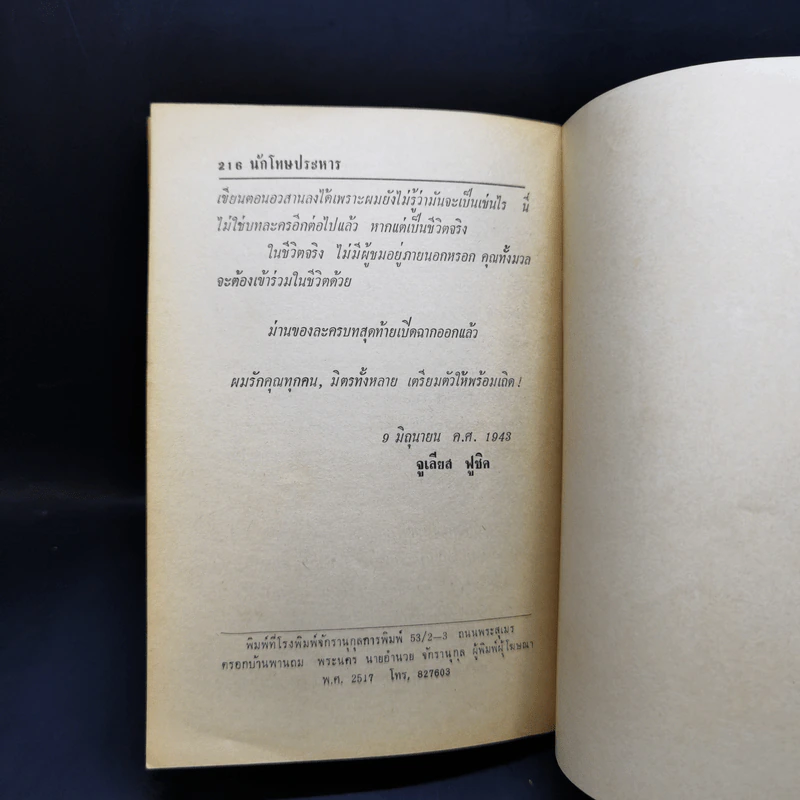 216 นักโทษประหาร
เขียนตอนอวสานลงได้เพราะผมยังไม่รู้ว่ามันจะเป็นเช่นไร นี่
ไม่ใช่บทละครอีกต่อไปแล้ว หากแต่เป็นชีวิตจริง
ในชีวิตจริง ไม่มีผู้ชมอยู่ภายนอกหรอก คุณทั้งมวล
จะต้องเข้าร่วมในชีวิตด้วย
ม่านของละครบทสุดท้ายเปิดฉากออกแล้ว
ผมรักคุณทุกคน, มิตรทั้งหลาย เตรียมตัวให้พร้อมเถิด!
9 มิถุนายน ค.ศ. 1943
จูเลียส ฟูซิค
พิมพ์ที่โรงพิมพ์จักรานุกูลการพิมพ์ 53/2-3 ถนนพระสุเมร
ตรอกบ้านพานถม พระนคร นายอำนวย จักรานุกูล ผู้พิมพ์ผู้โฆษณา
พ.ศ. 2517 โทร, 827603